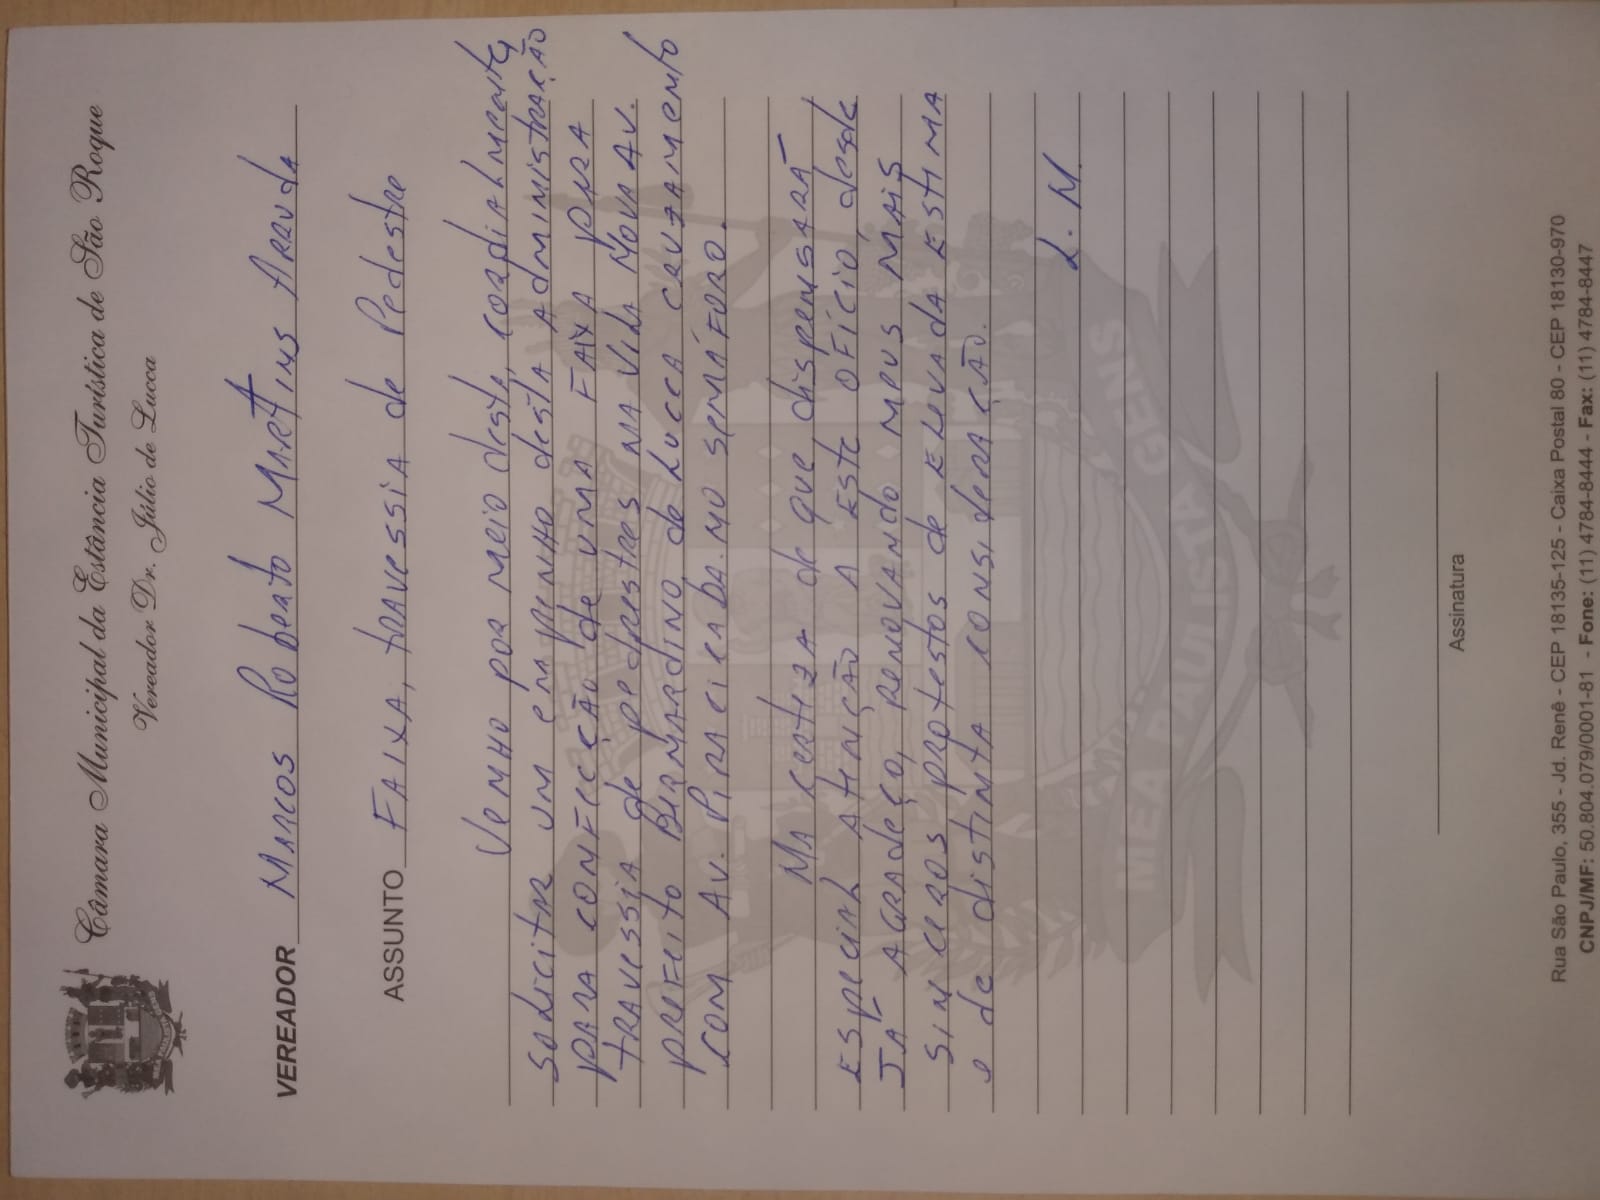 Câmara Municipal da Estância Turística de São Roque
Vereador Dr. Júlio de Lucca
VEREADOR MARCOS RobeRto MARtiNS ARRUdA
ASSUNTO FAIXA, tRAVESSIA de PedestRe
VENHO por meio desta, CORDIALMENTE
SOLICITAR UM EMPENHO destA AdMINISTRAÇÃO
PARA CONFECÇÃO de UMA FAIXA PARA
tRAVESSIA de pedestres NA VILA NOVA AV.
PREFEITO BERNARDINO de LUCCA CRUZAMENTO
COM AV. PIRACICABA. NO SEMÁFORO.
NA CERTEZA de QUE dISPENSARÁ
ESPECIAL ATENÇÃO A ESTE OFÍCIO, desde
JÁ AGRADEÇO, RENOVANDO MEUS MAIS
SINCEROS PROTESTOS de ELEVADA ESTIMA
e de distiNTA CONSIDERAÇÃO.
L. M.
MEA PAULISTA GENS
Assinatura
Rua São Paulo, 355 - Jd. Renê - CEP 18135-125 - Caixa Postal 80 - CEP 18130-970
CNPJ/MF: 50.804.079/0001-81 - Fone: (11) 4784-8444 - Fax: (11) 4784-8447